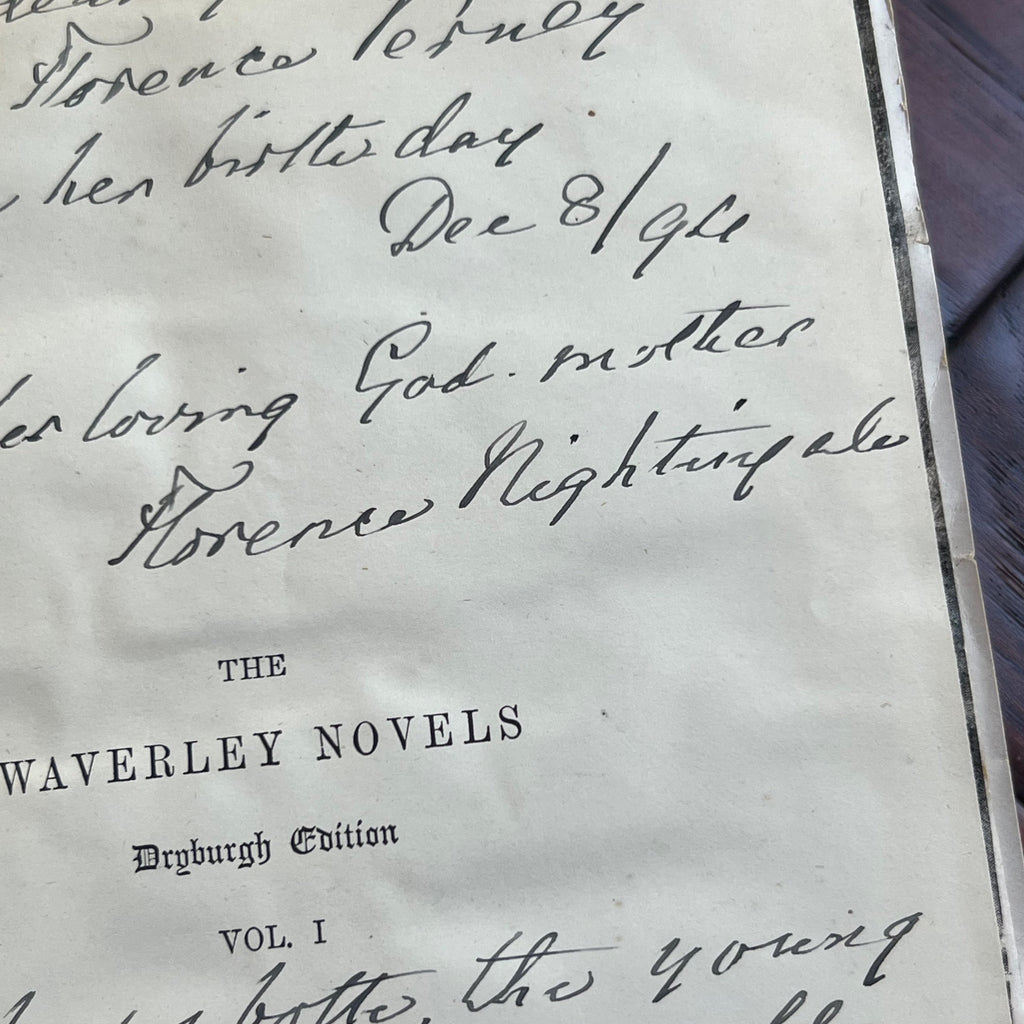 Florence Verney
her birthday
Dec 8/94
her loving God-mother
Florence Nightingale
THE
WAVERLEY NOVELS
Dryburgh Edition
VOL. I
both, the young